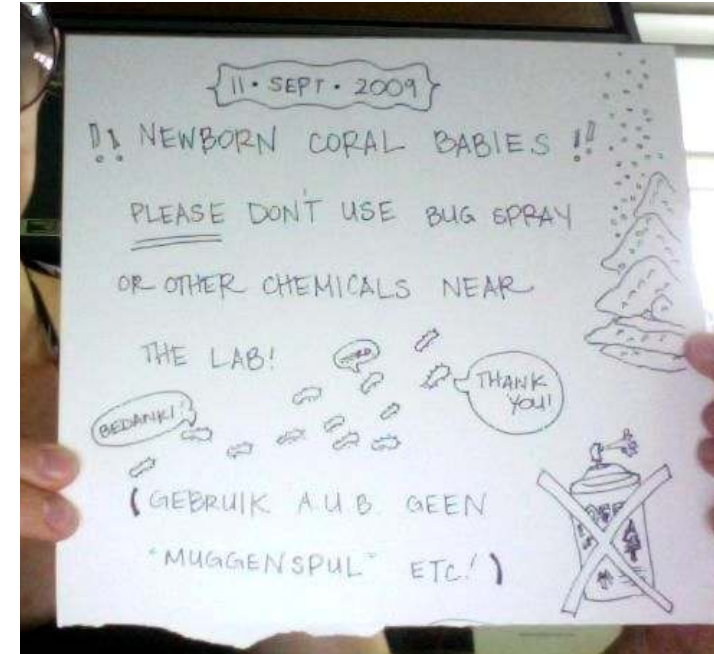 11 · SEPT · 2009
!! NEWBORN CORAL BABIES !!
PLEASE DON'T USE BUG SPRAY
OR OTHER CHEMICALS NEAR
THE LAB!
THANK
YOU!
BEDANKT!
(GEBRUIK A.U.B. GEEN
"MUGGENSPUL" ETC!)